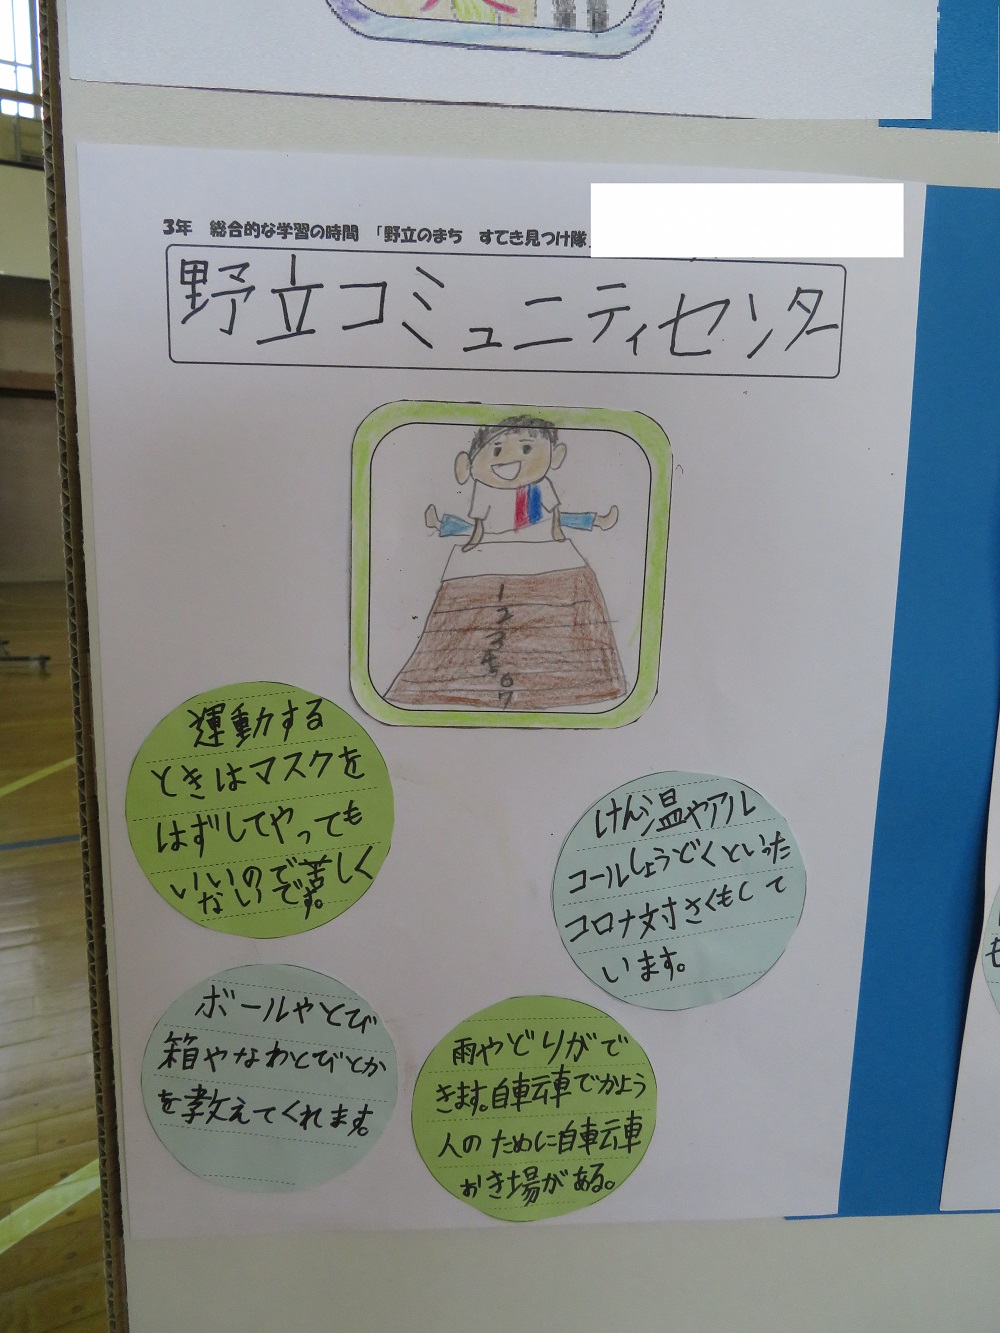 3年 総合的な学習の時間 「野立のまち すてき見つけ隊」
野立コミュニティセンター
1
2
3
4
5
6
7
運動する
ときはマスクを
はずしてやっても
いいので苦しく
ないです。
けん温やアル
コールしょうどくといった
コロナ対さくもして
います。
ボールやとび
箱やなわとびとか
を教えてくれます。
雨やどりがで
きます。自転車でかよう
人のために自転車
おき場がある。
も